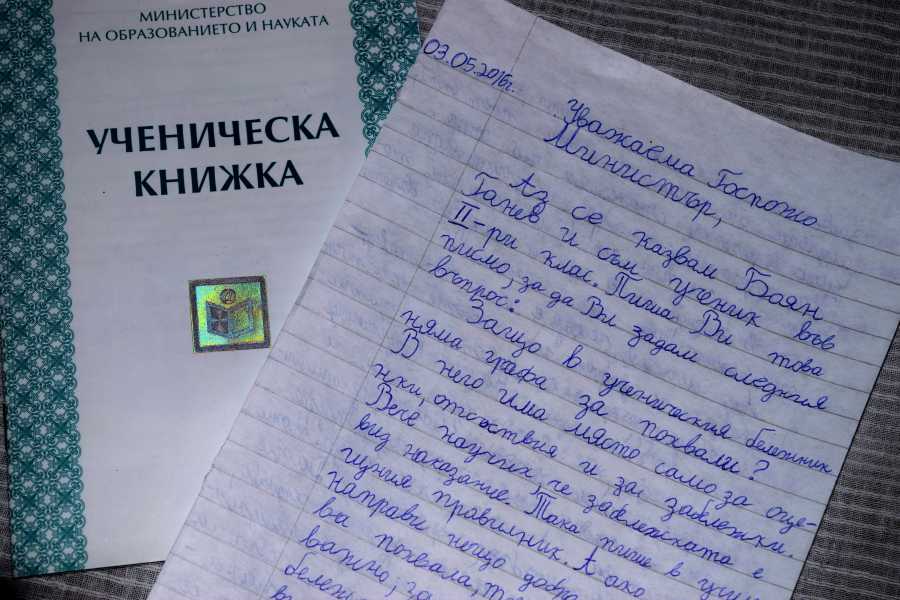 МИНИСТЕРСТВО
НА ОБРАЗОВАНИЕТО И НАУКАТА
УЧЕНИЧЕСКА
КНИЖКА
03.05.2016г.
Уважаема Госпожо
Министър,
Аз се казвам Боян
Ганев и съм ученик във
II-ри клас. Пиша Ви това
писмо, за да Ви задам следния
въпрос:
Защо в ученическия бележник
няма графа за похвали?
В него има място само за оце-
нки, отсъствия и за забележки.
Вече научих, че забележката е
вид наказание. Така пише в учили
щния правилник. А ако
направи нещо добро
ва похвала,
важно; за